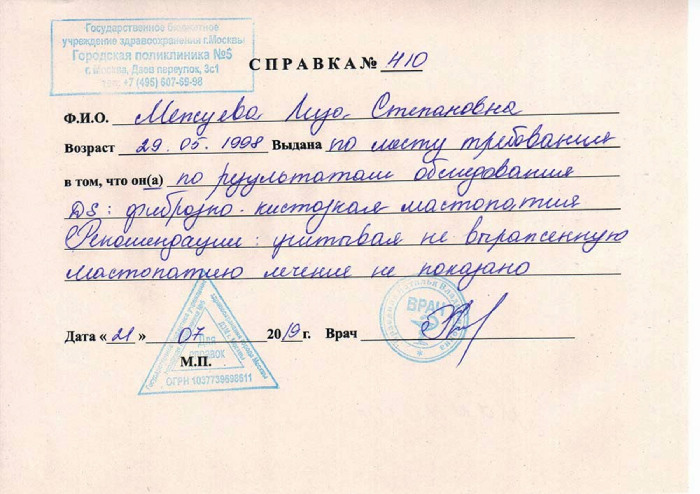 Государственное бюджетное
учреждение здравоохранения г.Москвы
Городская поликлиника №5
г. Москва, Даев переулок, 3с1
тел: +7 (495) 607-69-98
СПРАВКА № 410
Ф.И.О. Мепсуева Лиза Степановна
Возраст 29.05.1998 Выдана по месту требования
в том, что он(а) по результатам обследования
DS: фиброзно-кистозная мастопатия
Рекомендации: учитывая не выраженную
мастопатию лечение не показано
Дата «21» 07 2019г. Врач
ВРАЧ
ДЛЯ
СПРАВОК
М.П.
ОГРН 1037739698611